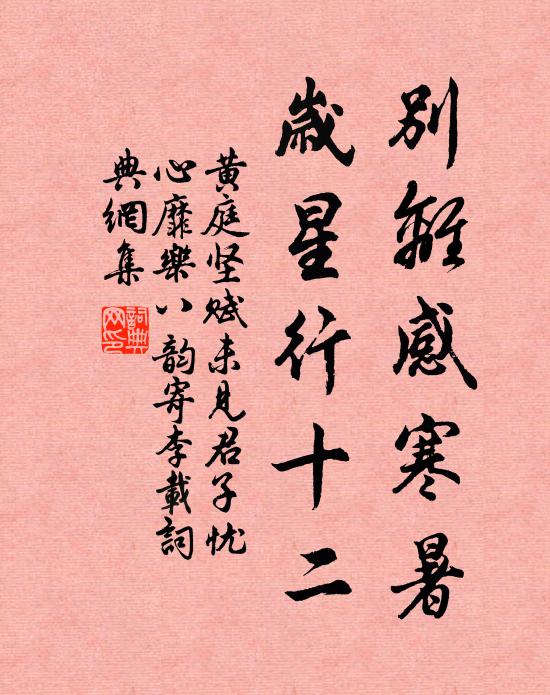 別離感寒暑
歲星行十二
黃庭坚赋未見君子忧
心靡樂八韵寄李載詞
典網集
詞典网印